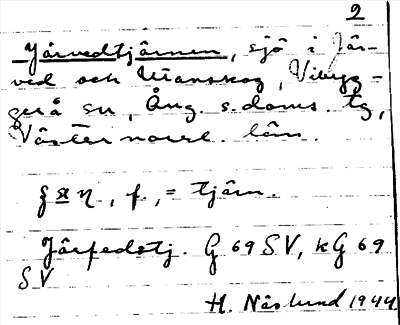 2
Järvedtjärnen, sjö i Jär-
ved och Utanskog, Vibyg-
gerå sn, Ång. s. doms. tg,
Västernorrl. län.
ʃæη, f, = tjärn.
Järfedstj. G 69 SV, kG 69
SV
H. Näslund 1944